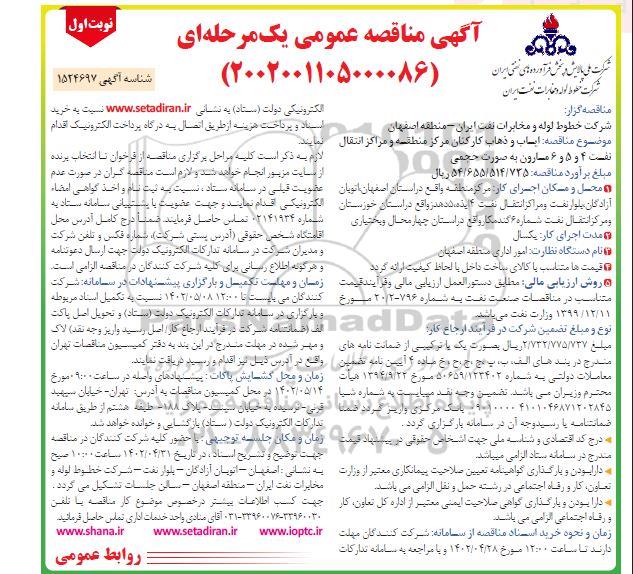 نوبت اول
آگهی مناقصه عمومی یک‌مرحله‌ای
(۲۰۰۲۰۰۱۱۰۵۰۰۰۰۸۶)
شناسه آگهی ۱۵۲۴۶۹۷
شرکت ملی پالایش و پخش فرآورده‌های نفتی ایران
شرکت خطوط لوله و مخابرات نفت ایران
مناقصه‌گزار:
شرکت خطوط لوله و مخابرات نفت ایران – منطقه اصفهان
موضوع مناقصه: ایاب و ذهاب کارکنان مرکز منطقه و مراکز انتقال
نفت ۴ و ۵ و ۶ مارون به صورت حجمی
مبلغ برآورد مناقصه: ۵۴/۶۵۵/۵۱۴/۷۳۵ ریال
۱ محل و مکان اجرای کار: مرکز منطقه واقع در استان اصفهان اتوبان
آزادگان بلوار نفت و مراکز انتقال نفت ۴ ایذه، ۵ دهدز واقع در استان خوزستان
و مرکز انتقال نفت شماره ۶ گندمکار واقع در استان چهارمحال وبختیاری
۲ مدت اجرای کار: یکسال
۳ نام دستگاه نظارت: امور اداری منطقه اصفهان
۴ قیمت ها متناسب با کالای ساخت داخل با لحاظ کیفیت ارائه گردد
۵ روش ارزیابی مالی: مطابق دستورالعمل ارزیابی مالی وفرآیندقیمت
متناسب در مناقصات صنعت نفت به شماره ۷۹۶-۲۰/۲ مورخ
۱۳۹۹/۱۲/۱۱ وزارت نفت می باشد.
نوع و مبلغ تضمین شرکت در فرآیند ارجاع کار:
۲/۷۳۲/۷۷۵/۷۳۷ ریال بصورت یک یا ترکیبی از ضمانت نامه های
مندرج در بند های الف، ب، پ، ج، چ، ح، خ ماده ۴ آیین نامه تضمین
معاملات دولتی به شماره ۵۰۶۵۹/۱۲۳۴۰۲ مورخ ۱۳۹۴/۹/۲۲ هیأت
محترم وزیران می باشد. تضمین وجه نقد میبایست به شماره شبا
بانک مرکزی واریز گردد ضمنا
ضمانتنامه یا رسید وجه آن در سامانه بارگزاری گردد .
درج کد اقتصادی و شناسه ملی جهت اشخاص حقوقی در پیشنهاد قیمت
مندرج در سامانه ستاد الزامی میباشد.
دارا بودن و بارگذاری گواهینامه تعیین صلاحیت پیمانکاری معتبر از وزارت
تعاون، کار و رفاه اجتماعی در رشته حمل و نقل الزامی می باشد.
دارا بودن و بارگذاری گواهی صلاحیت ایمنی معتبر از اداره کل تعاون، کار
و رفاه اجتماعی الزامی می باشد.
زمان و نحوه خرید اسناد مناقصه از سامانه: شرکت کنندگان مهلت
دارند تا ساعت ۱۲:۰۰ مورخ ۱۴۰۲/۰۴/۲۸ و با مراجعه به سامانه تدارکات
الکترونیکی دولت (ستاد) به نشانی www.setadiran.ir نسبت به خرید
اسناد و پرداخت هزینه ازطریق اتصال به درگاه پرداخت الکترونیک اقدام
نمایند.
لازم به ذکر است کلیه مراحل برگزاری مناقصه از فراخوان تا انتخاب برنده
از سایت مزبور انجام خواهد شد و لازم است مناقصه گران در صورت عدم
عضویت قبلی در سامانه ستاد ، نسبت به ثبت نام و اخذ گواهی امضاء
الکترونیکی اقدام نمایند و جهت عضویت با پشتیبانی سامانه ستاد به
شماره ۰۲۱۴۱۹۳۴ تماس حاصل فرمایند. ضمنا درج کامل آدرس محل
اقامتگاه شخص حقوقی (آدرس پستی شرکت)، شماره فکس و تلفن شرکت
و مدیران شرکت در سامانه تدارکات الکترونیک دولت جهت ارسال دعوتنامه
و هرگونه اطلاع رسانی برای کلیه شرکت کنندگان در مناقصه الزامی است.
زمان و مهلت تکمیل و بارگزاری پیشنهادات در سامانه: شرکت
کنندگان می بایست تا ۱۲:۰۰ ۱۴۰۲/۰۵/۰۸ نسبت به تکمیل اسناد مربوطه
و بارگزاری در سامانه تدارکات الکترونیک دولت (ستاد) و تحویل اصل پاکت
الف (ضمانتنامه شرکت در فرآیند ارجاع کار/ اصل رسید واریز وجه نقد) لاک
و مهر شده در مهلت مندرج در این بند به دفتر کمیسیون مناقصات تهران
واقع در آدرس ذیل نیز اقدام و رسید دریافت نمایند.
زمان و محل گشایش پاکات : پیشنهادهای واصله در ساعت ۰۹:۰۰ مورخ
۱۴۰۲/۰۵/۱۴ در محل کمیسیون مناقصات به آدرس: تهران- خیابان سپهبد
قرنی- نرسیده به خیابان سمیه- پلاک ۱۸۸- طبقه هشتم از طریق سامانه
تدارکات الکترونیک دولت ( ستاد) بازگشایی و خوانده خواهد شد.
زمان و مکان جلسه توجیهی : با حضور کلیه شرکت کنندگان در مناقصه
جهت توضیح و تشریح اسناد ، در تاریخ ۱۴۰۲/۰۴/۳۱ ساعت ۱۰:۰۰ صبح
به نشانی : اصفهان – اتوبان آزادگان – بلوار نفت – شرکت خطوط لوله و
مخابرات نفت ایران – منطقه اصفهان – سالن جلسات تشکیل می گردد .
جهت کسب اطلاعات بیشتر درخصوص موضوع کار مناقصه با تلفن
۰۳۱-۳۳۹۶۰۰۷۶-۳۳۹۶۰۰۳۰ آقای منادی واحد خدمات اداری تماس حاصل فرمائید.
www.shana.ir www.setadiran.ir www.ioptc.ir
روابط عمومی